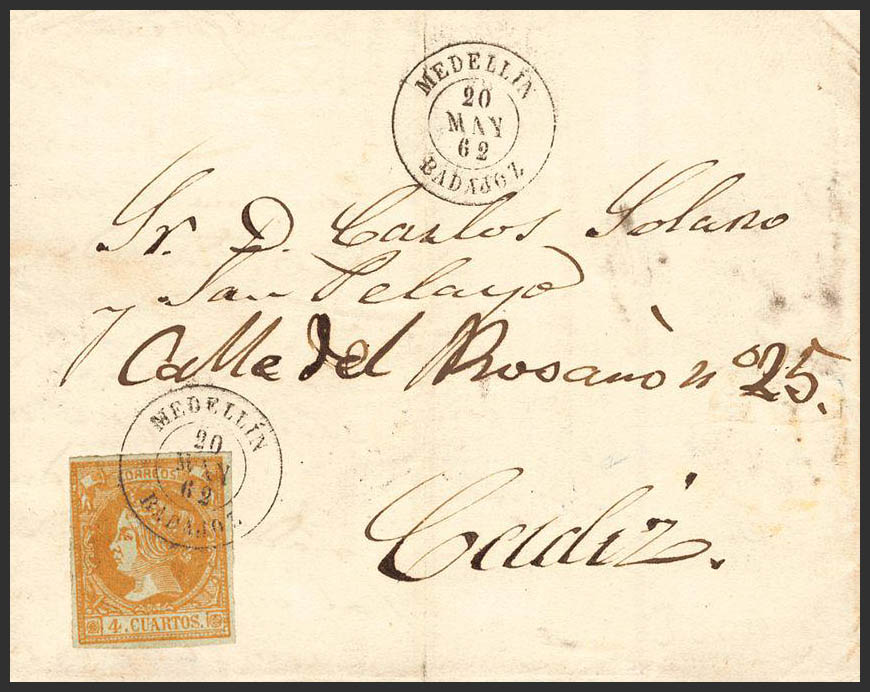 MEDELLÍN
20
MAY
62
BADAJOZ
Sr. D. Carlos Solano
y San Pelayo
Calle del Rosario nº 25.
MEDELLÍN
20
MAY
62
BADAJOZ
CORREOS
4. CUARTOS.
Cadiz.